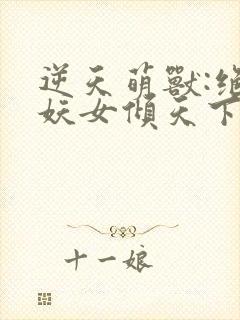 逆天萌獸:絕
妖女傾天下
十一娘